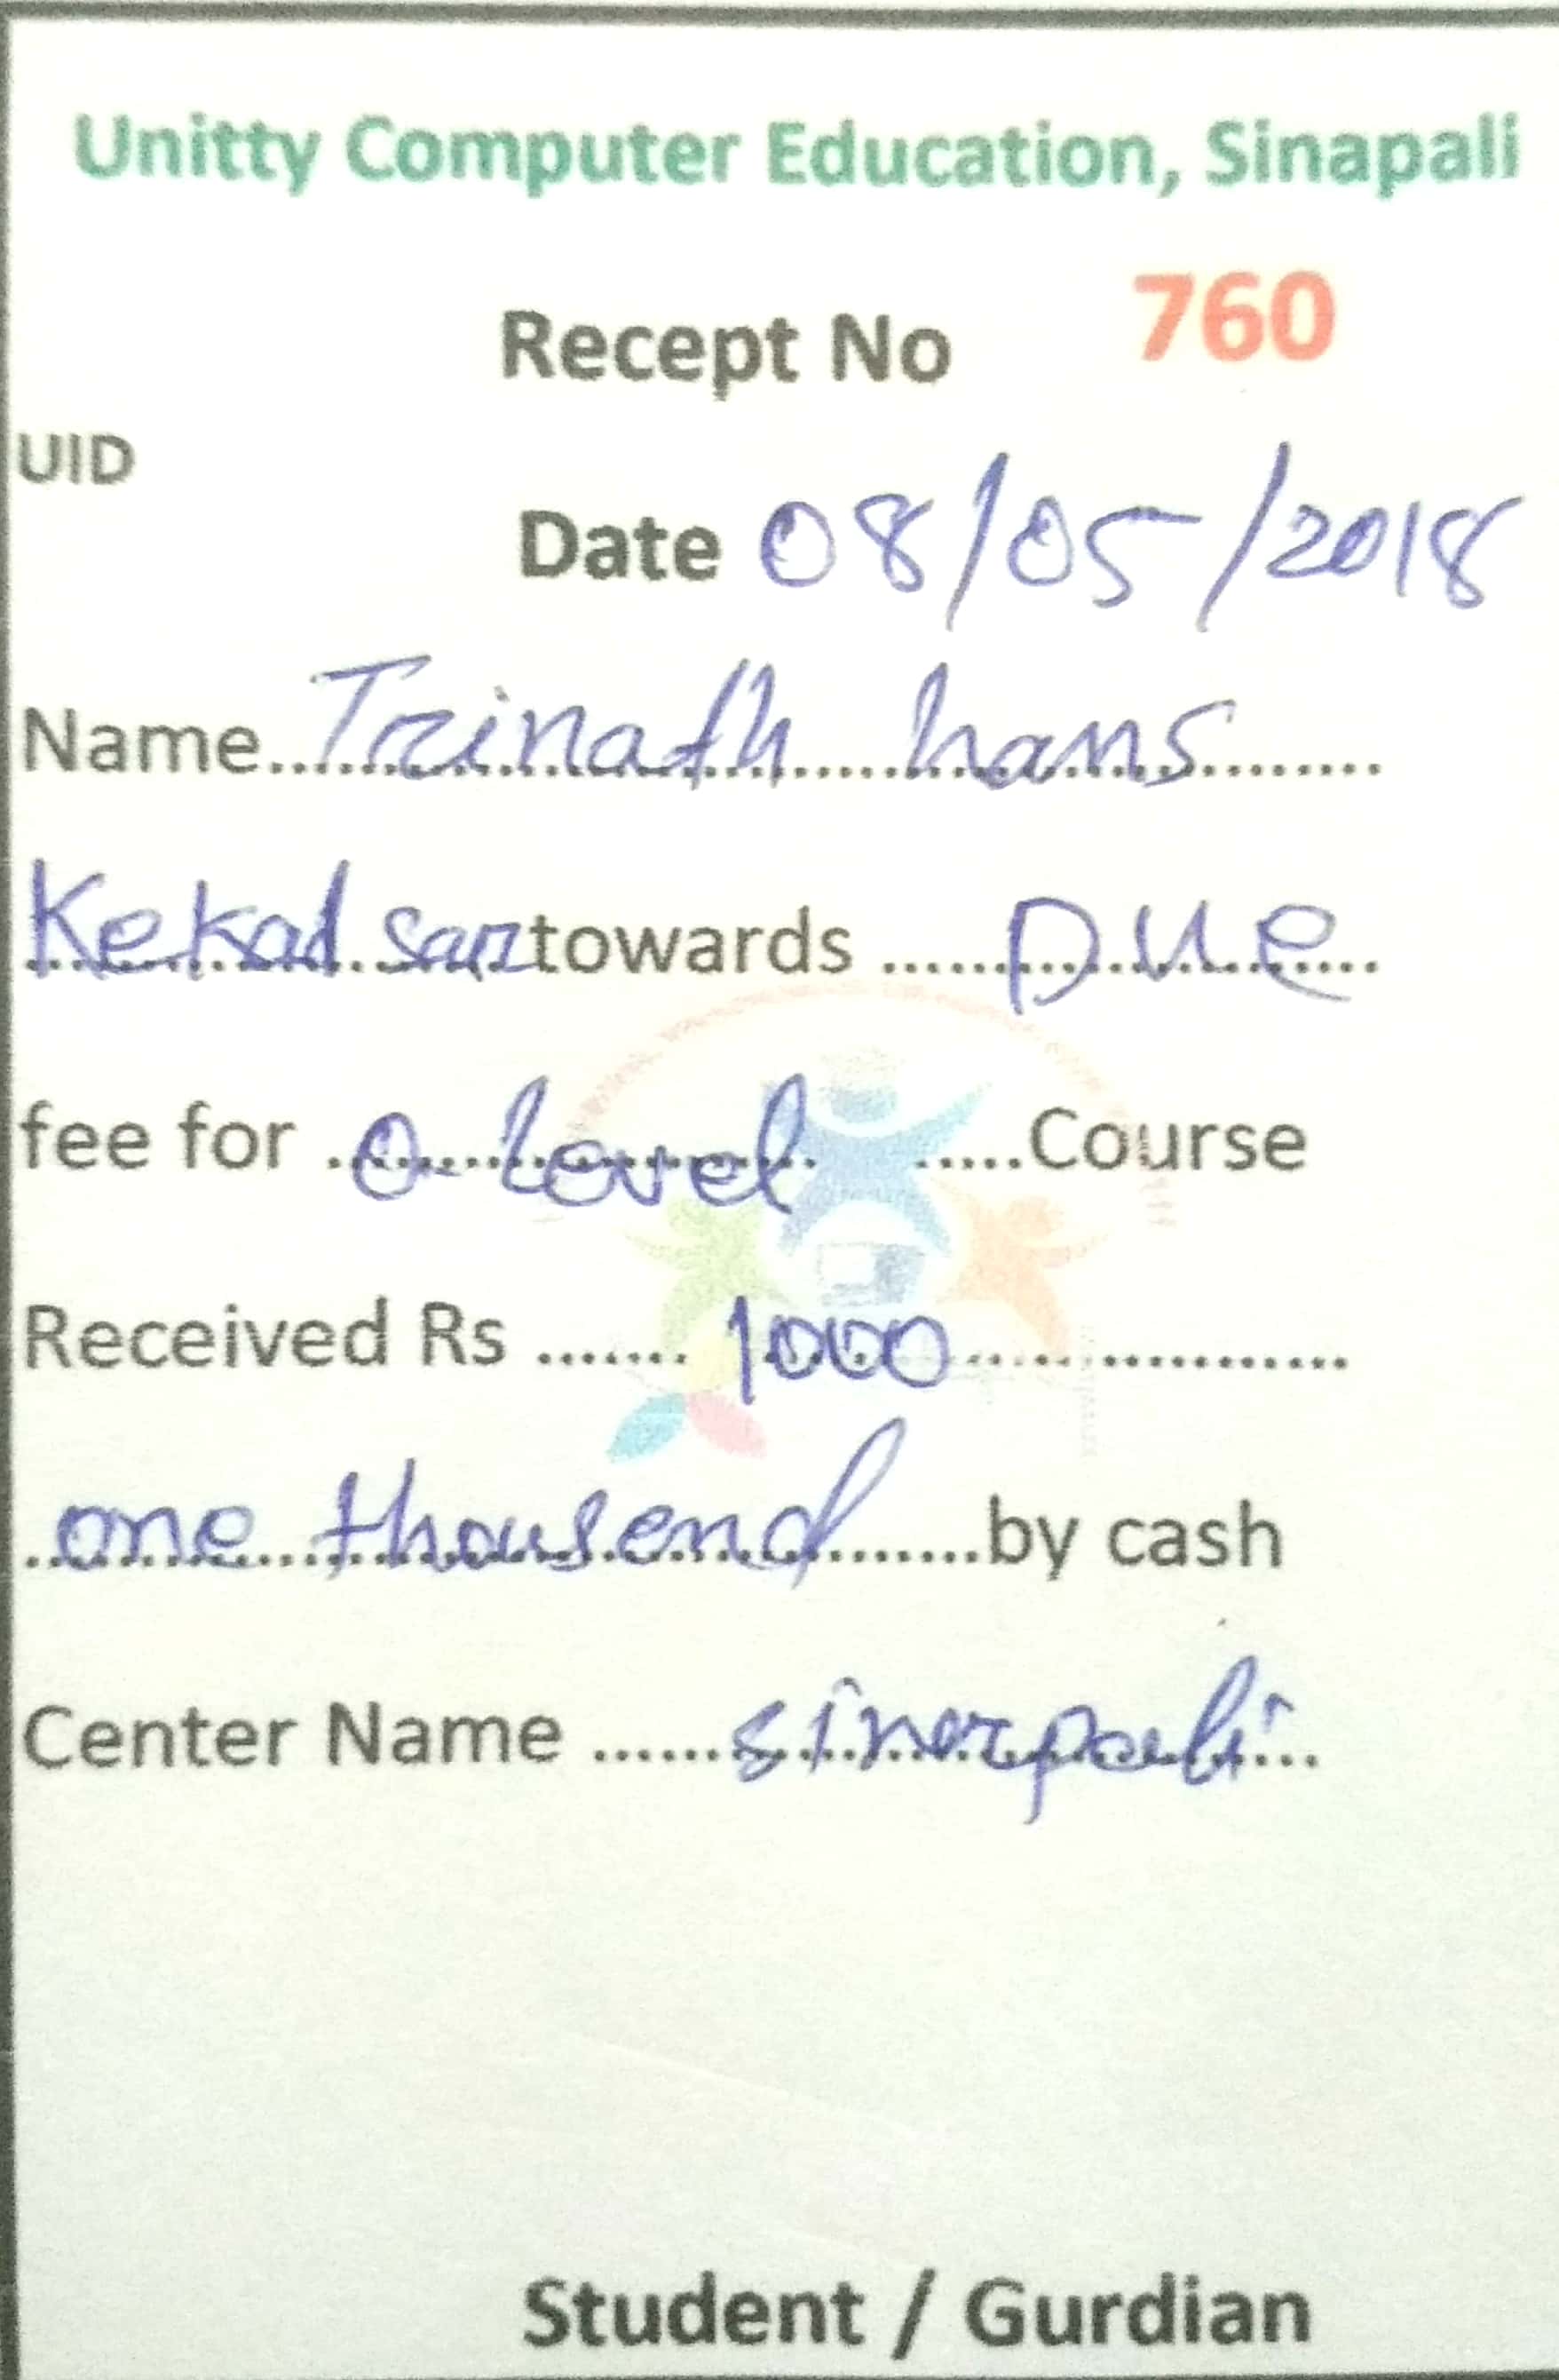 Unitty Computer Education, Sinapali
Recept No 760
UID
Date 08/05/2018
Name Trinath hans
Kekad sar towards Due
fee for O-Level Course
Received Rs 1000
one thousend by cash
Center Name sinapali
Student / Gurdian